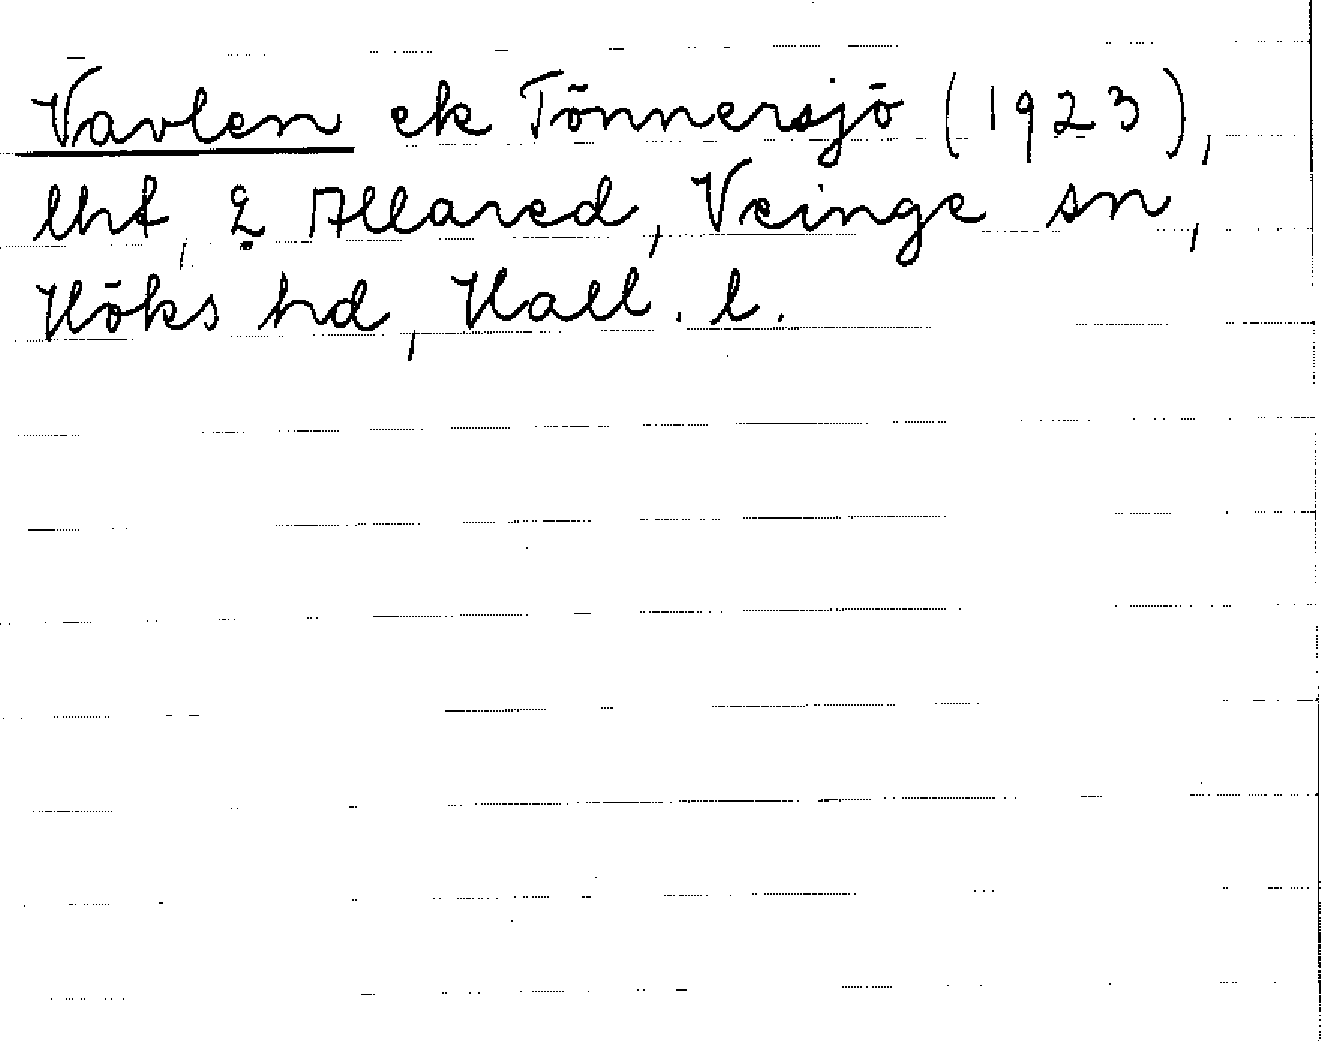 Vavlen ek Tönnersjö (1923),
lht, 2 Allared, Veinge sn,
Höks hd, Hall. l.